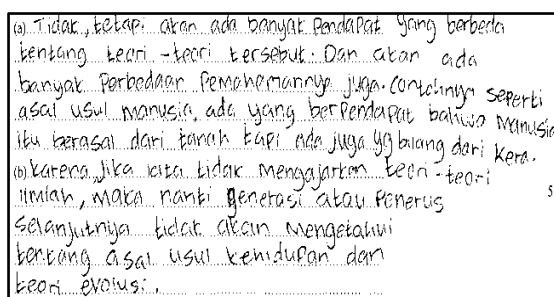 (a) Tidak, tetapi akan ada banyak Pendapat yang berbeda
tentang teori-teori tersebut. Dan akan ada
banyak Perbedaan Pemahamannya juga. contohnya seperti
asal usul manusia, ada yang berpendapat bahwa manusia
itu berasal dari tanah tapi ada juga yg bilang dari kera.
(b) karena, jika kita tidak mengajarkan teori-teori
ilmiah, maka nanti generasi atau Penerus
selanjutnya tidak akan mengetahui
tentang asal usul kehidupan dan
teori evolusi.